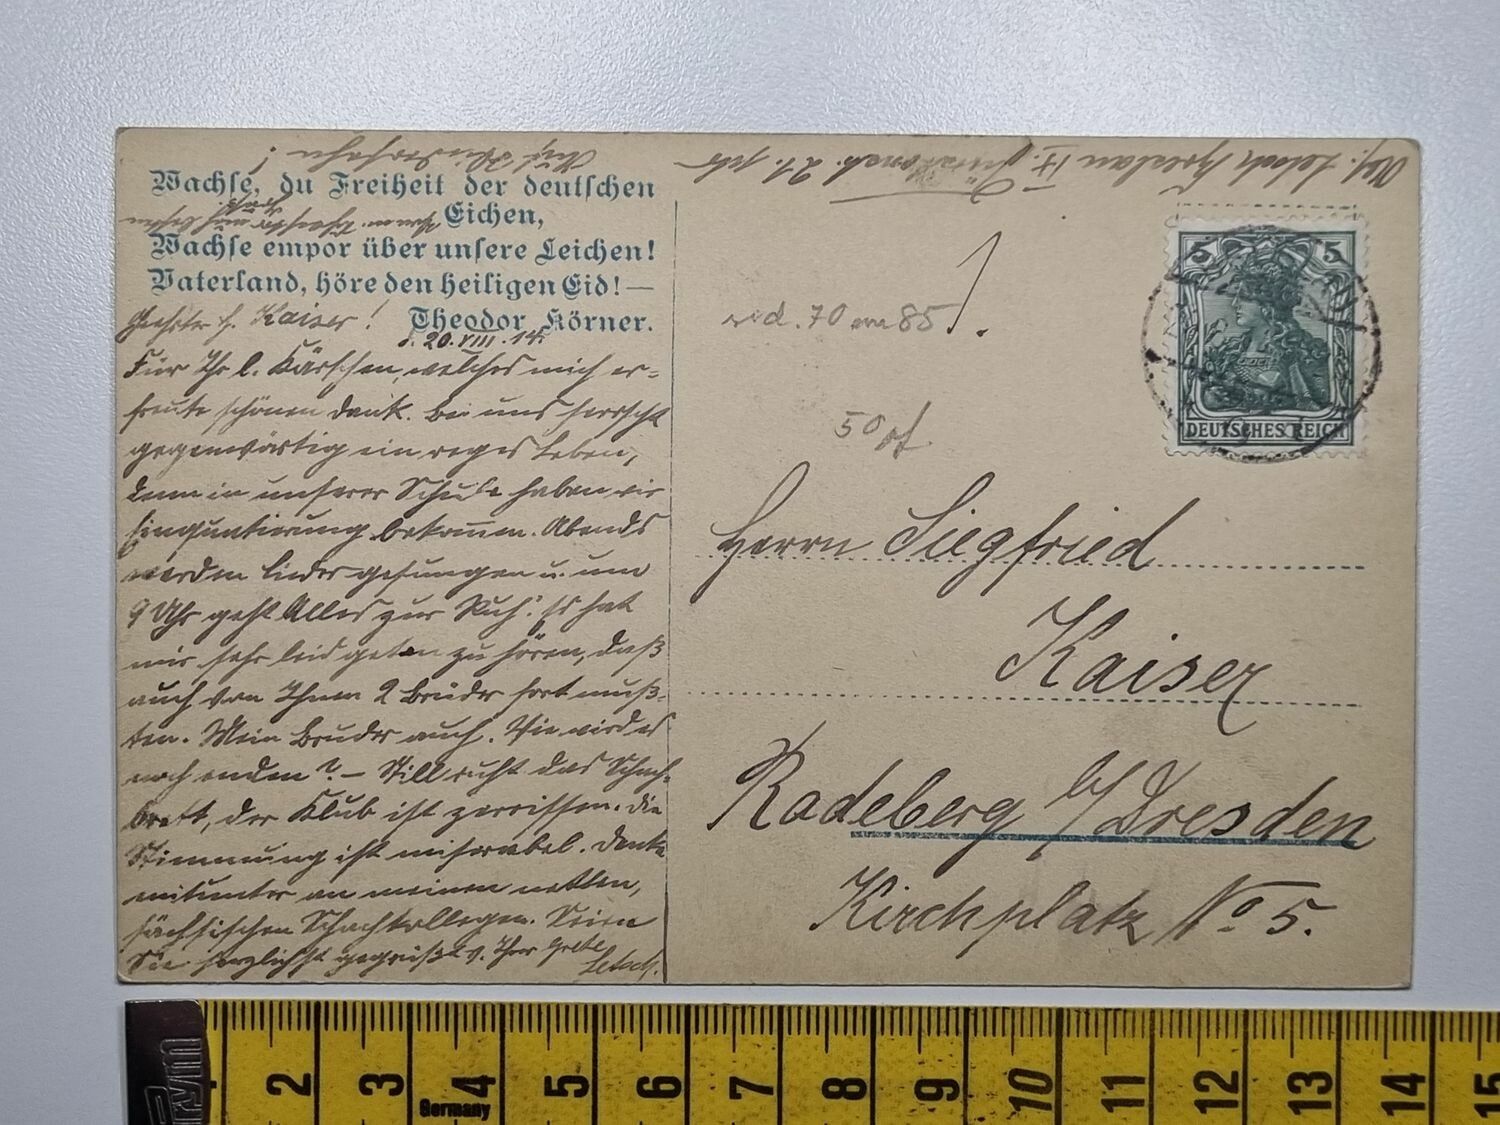 Auf Wiedersehn!
Wachse, du Freiheit der deutschen
Eichen,
Wachse empor über unsere Leichen!
Vaterland, höre den heiligen Eid! —
Theodor Körner.
Geehrter H. Kaiser!
d. 20.VIII.14.
Für Ihr l. Kärtchen, welches mich er-
freute schönen Dank. Bei uns herrscht
gegenwärtig ein reges Leben,
denn in unserer Schule haben wir
Einquartierung bekommen. Abends
werden Lieder gesungen u. um
9 Uhr geht Alles zur Ruh'. Es hat
mir sehr leid getan zu hören, daß
auch von Ihnen 2 Brüder fort muß-
ten. Mein Bruder auch. Wie wird es
noch enden? — Still ruht das Schach-
brett, der Klub ist zerrissen. Die
Stimmung ist miserabel. Denke
mitunter an meinen netten,
sächsischen Schachkollegen. Seien
Sie herzlichst gegrüßt v. Ihrer Grete
Letsch.
Abs. Letsch Breslau IX.
5 5
DEUTSCHES REICH
50 pf
Herrn Siegfried
Kaiser
Radeberg b/Dresden
Kirchplatz No 5.
Prym
Germany
2 3 4 5 6 7 8 9 10 11 12 13 14 15